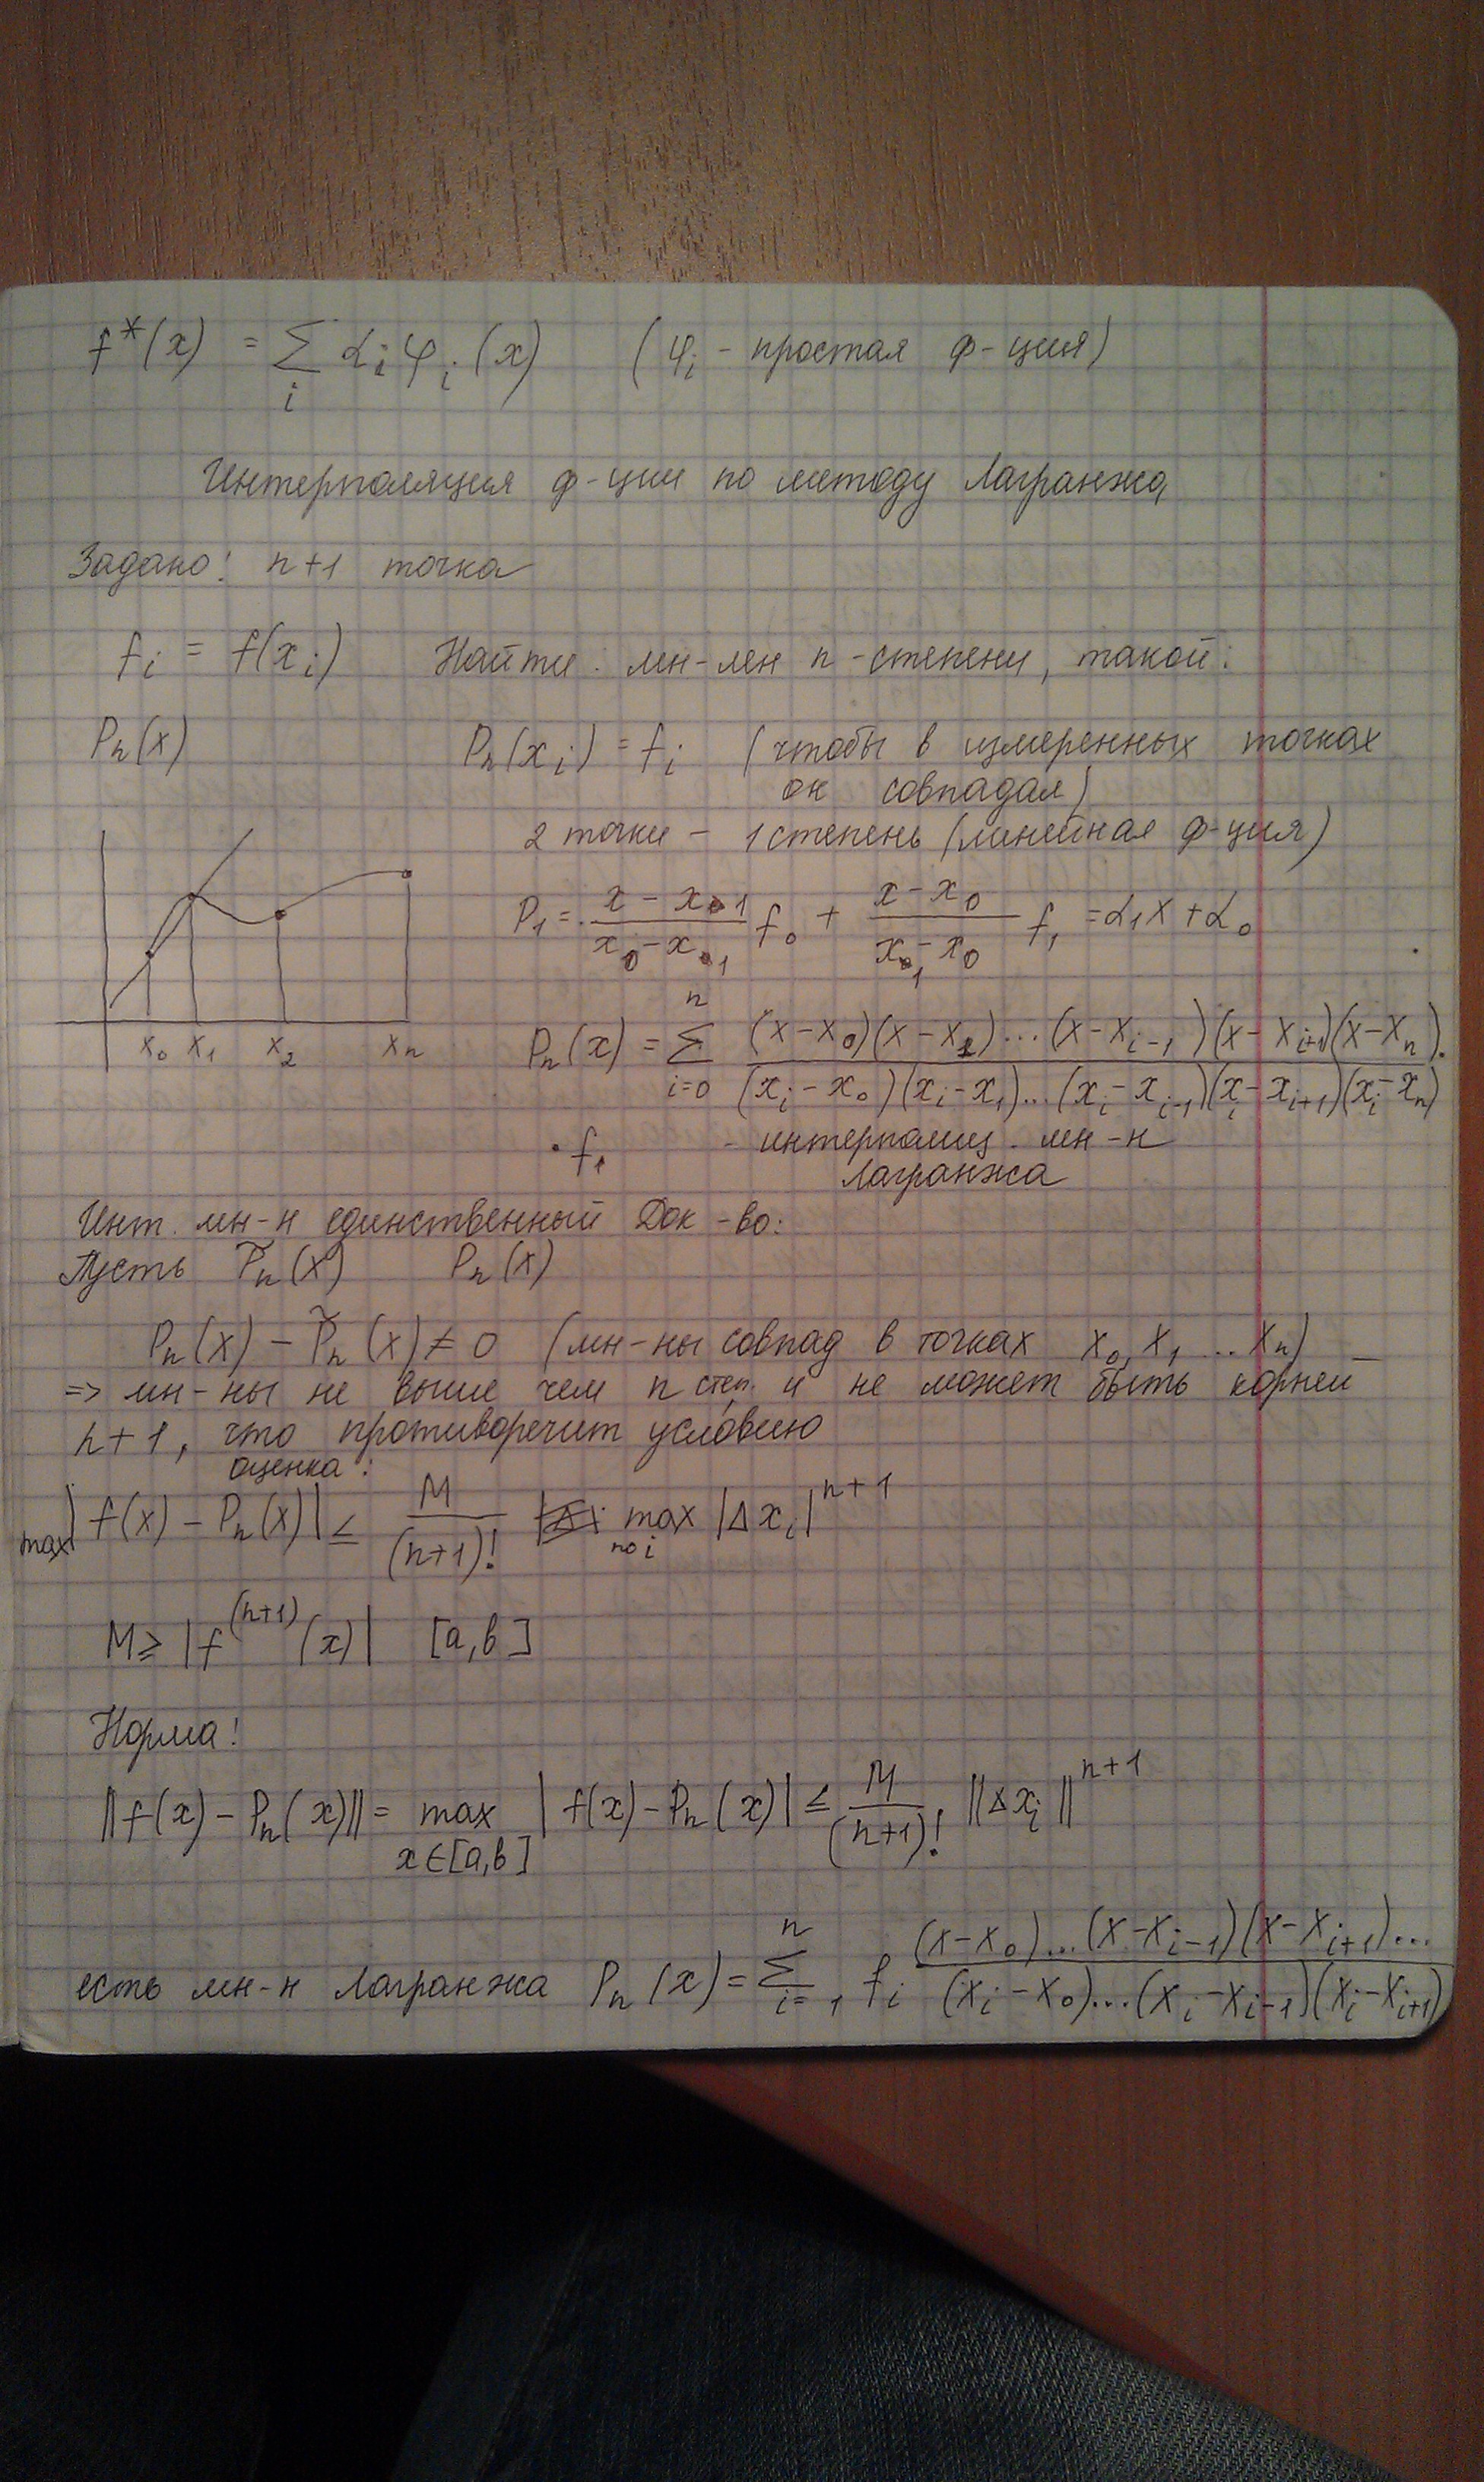 f*(x) = Σ_i α_i φ_i (x) (φ_i - простая ф-ция)
Интерполяция ф-ции по методу Лагранжа
Задано: n+1 точка
f_i = f(x_i) Найти: мн-лен n-степени, такой:
P_n(x) P_n(x_i) = f_i (чтобы в измеренных точках
он совпадал)
2 точки - 1 степень (линейная ф-ция)
P_1 = (x - x_1)/(x_0 - x_1) f_0 + (x - x_0)/(x_1 - x_0) f_1 = α_1 x + α_0
x_0 x_1 x_2 x_n
P_n(x) = Σ_{i=0}^{n} (x-x_0)(x-x_1)...(x-x_{i-1})(x-x_{i+1})(x-x_n) / (x_i-x_0)(x_i-x_1)...(x_i-x_{i-1})(x_i-x_{i+1})(x_i-x_n) ·
· f_1 - интерполяц. мн-н
Лагранжа
Инт. мн-н единственный Док-во:
Пусть P̃_n(x) P_n(x)
P_n(x) - P̃_n(x) ≠ 0 (мн-ны совпад в точках x_0, x_1 ... x_n)
=> мн-ны не выше чем n степ. и не может быть корней
n+1, что противоречит условию
оценка:
max |f(x) - P_n(x)| ≤ M/(n+1)! max_{по i} |Δx_i|^{n+1}
M ≥ |f^{(n+1)}(x)| [a,b]
Норма:
||f(x) - P_n(x)|| = max_{x∈[a,b]} |f(x) - P_n(x)| ≤ M/(n+1)! ||Δx_i||^{n+1}
есть мн-н Лагранжа P_n(x) = Σ_{i=1}^{n} f_i (x-x_0)...(x-x_{i-1})(x-x_{i+1})... / (x_i-x_0)...(x_i-x_{i-1})(x_i-x_{i+1})